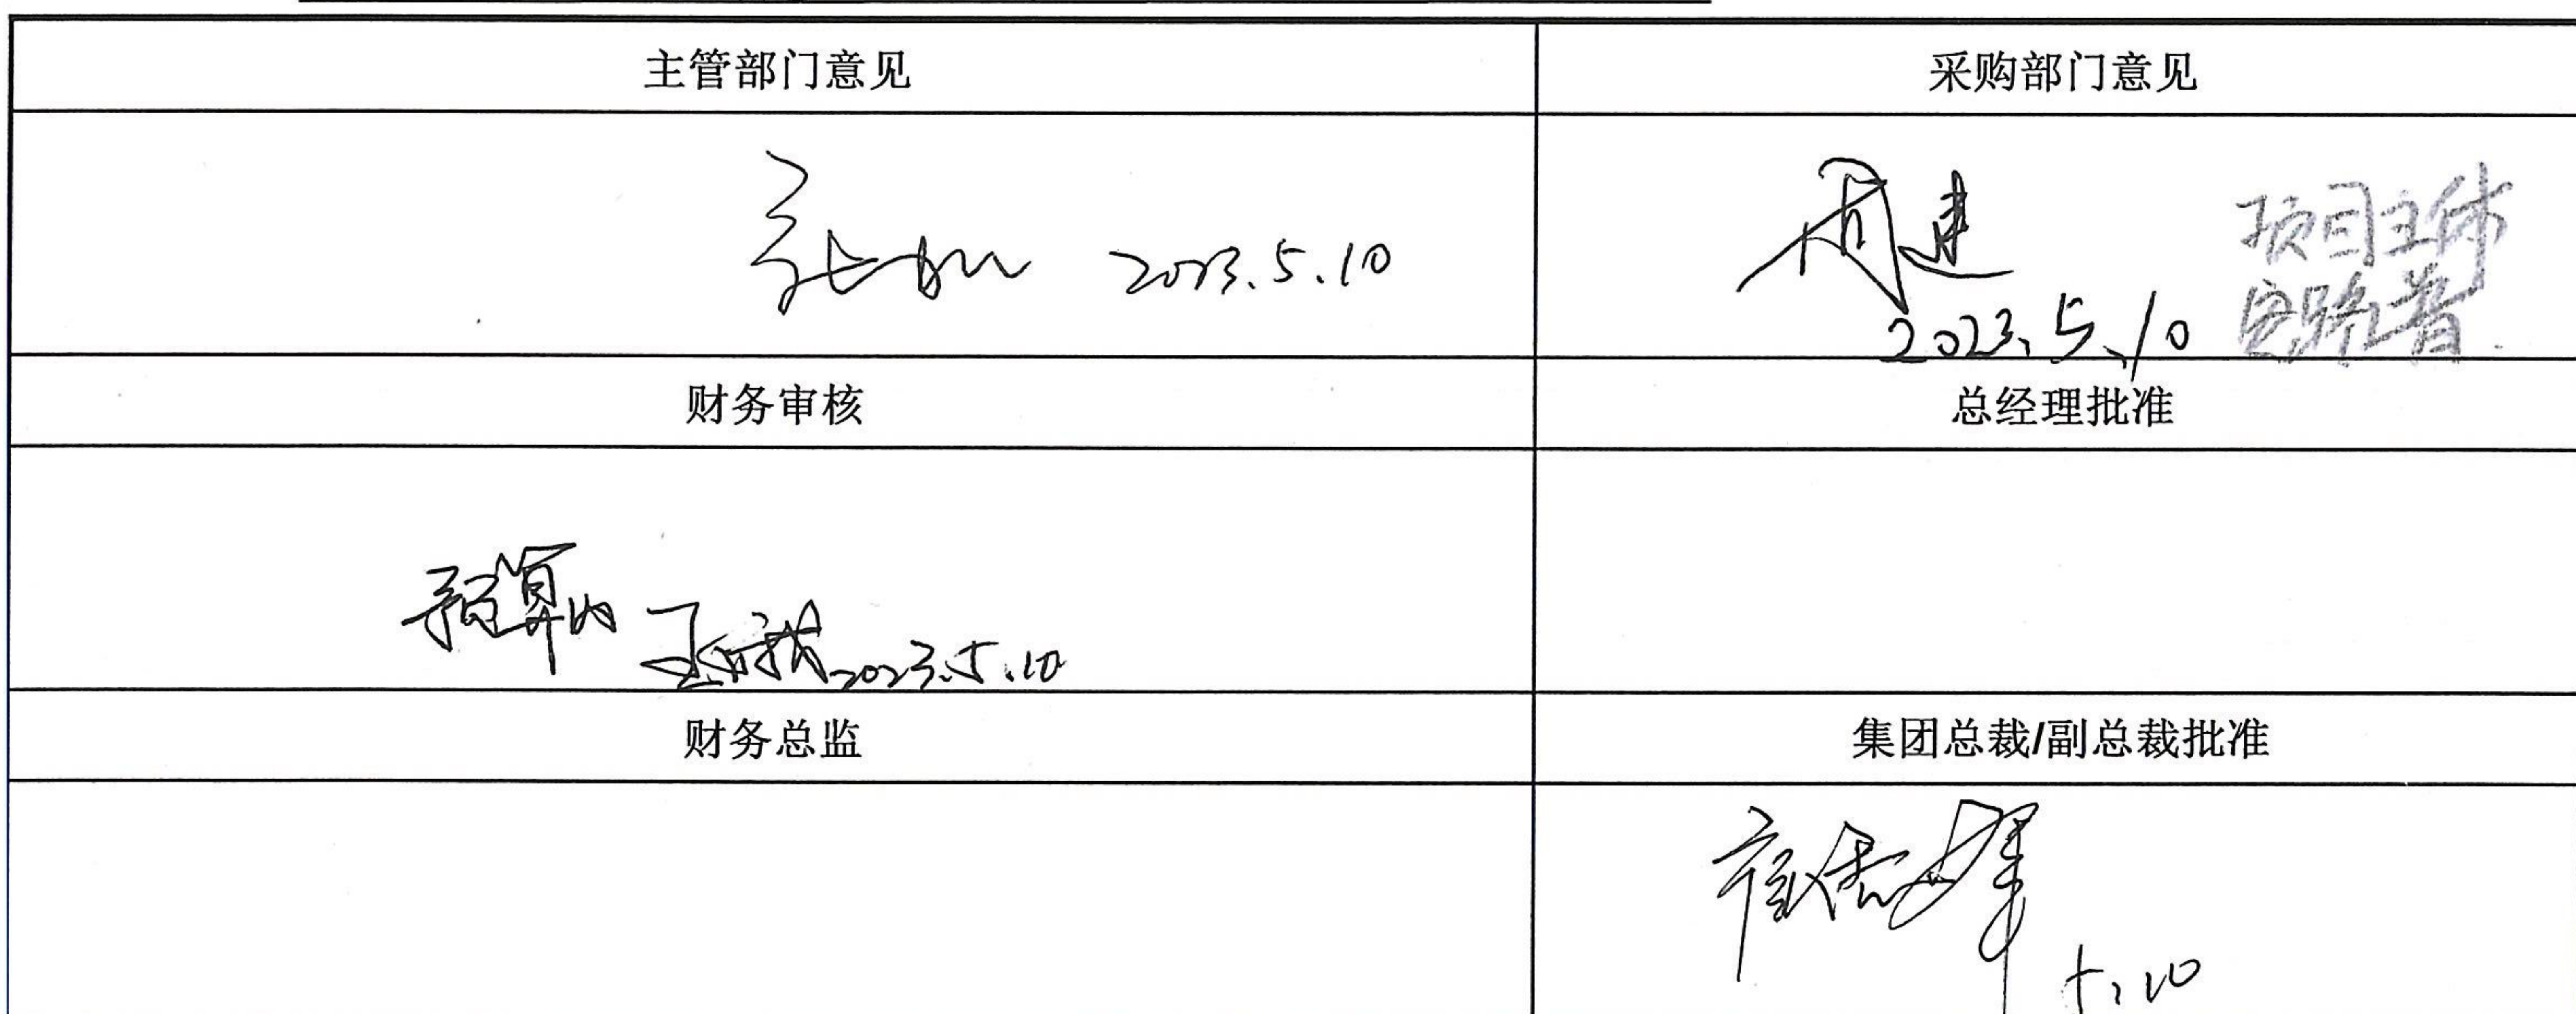 主管部门意见
采购部门意见
2023.5.10
周建
2023.5.10
项目主体
财务审核
总经理批准
预算内
2023.5.10
财务总监
集团总裁/副总裁批准
5.10